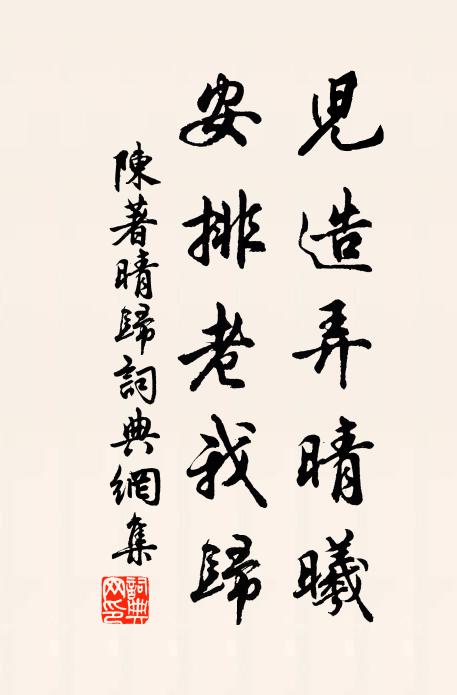 兒造弄晴曦
安排老我歸
陳著晴歸詞典網集
詞典網印